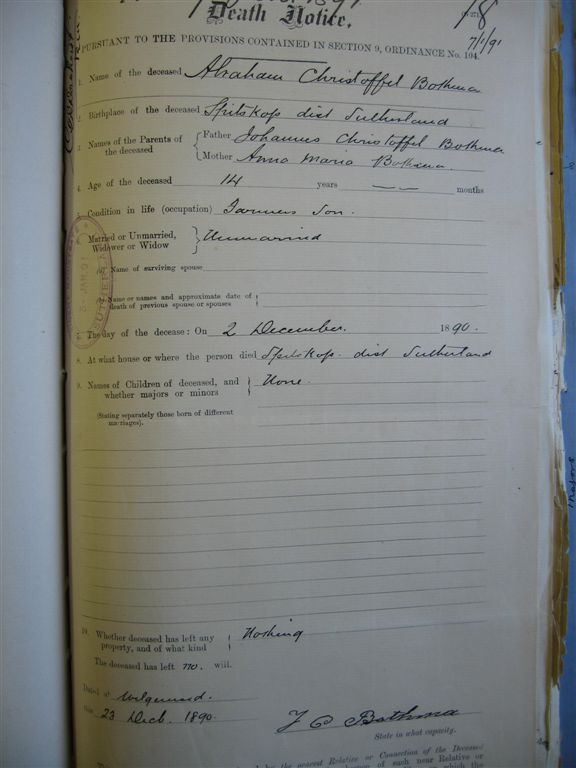 Death Notice.
18
7/1/91
PURSUANT TO THE PROVISIONS CONTAINED IN SECTION 9, ORDINANCE No. 104.
1. Name of the deceased Abraham Christoffel Bothma
2. Birthplace of the deceased Spitskop dist Sutherland
3. Names of the Parents of the deceased { Father Johannes Christoffel Bothma
Mother Anna Maria Bothma.
4. Age of the deceased 14 years — — months
5. Condition in life (occupation) Farmers Son.
Married or Unmarried, Widower or Widow } Unmarried
(a) Name of surviving spouse
(b) Name or names and approximate date of death of previous spouse or spouses
7. The day of the decease: On 2 December. 1890.
8. At what house or where the person died Spitskop. dist Sutherland
9. Names of Children of deceased, and whether majors or minors } None.
(Stating separately those born of different marriages).
10. Whether deceased has left any property, and of what kind { Nothing
The deceased has left no. will.
Dated at
this 23 Decb. 1890.
J C Bothma
State in what capacity.
by the nearest Relative or Connection of the Deceased
of each near Relative or
which the
SUTHERLAND
JAN. 91